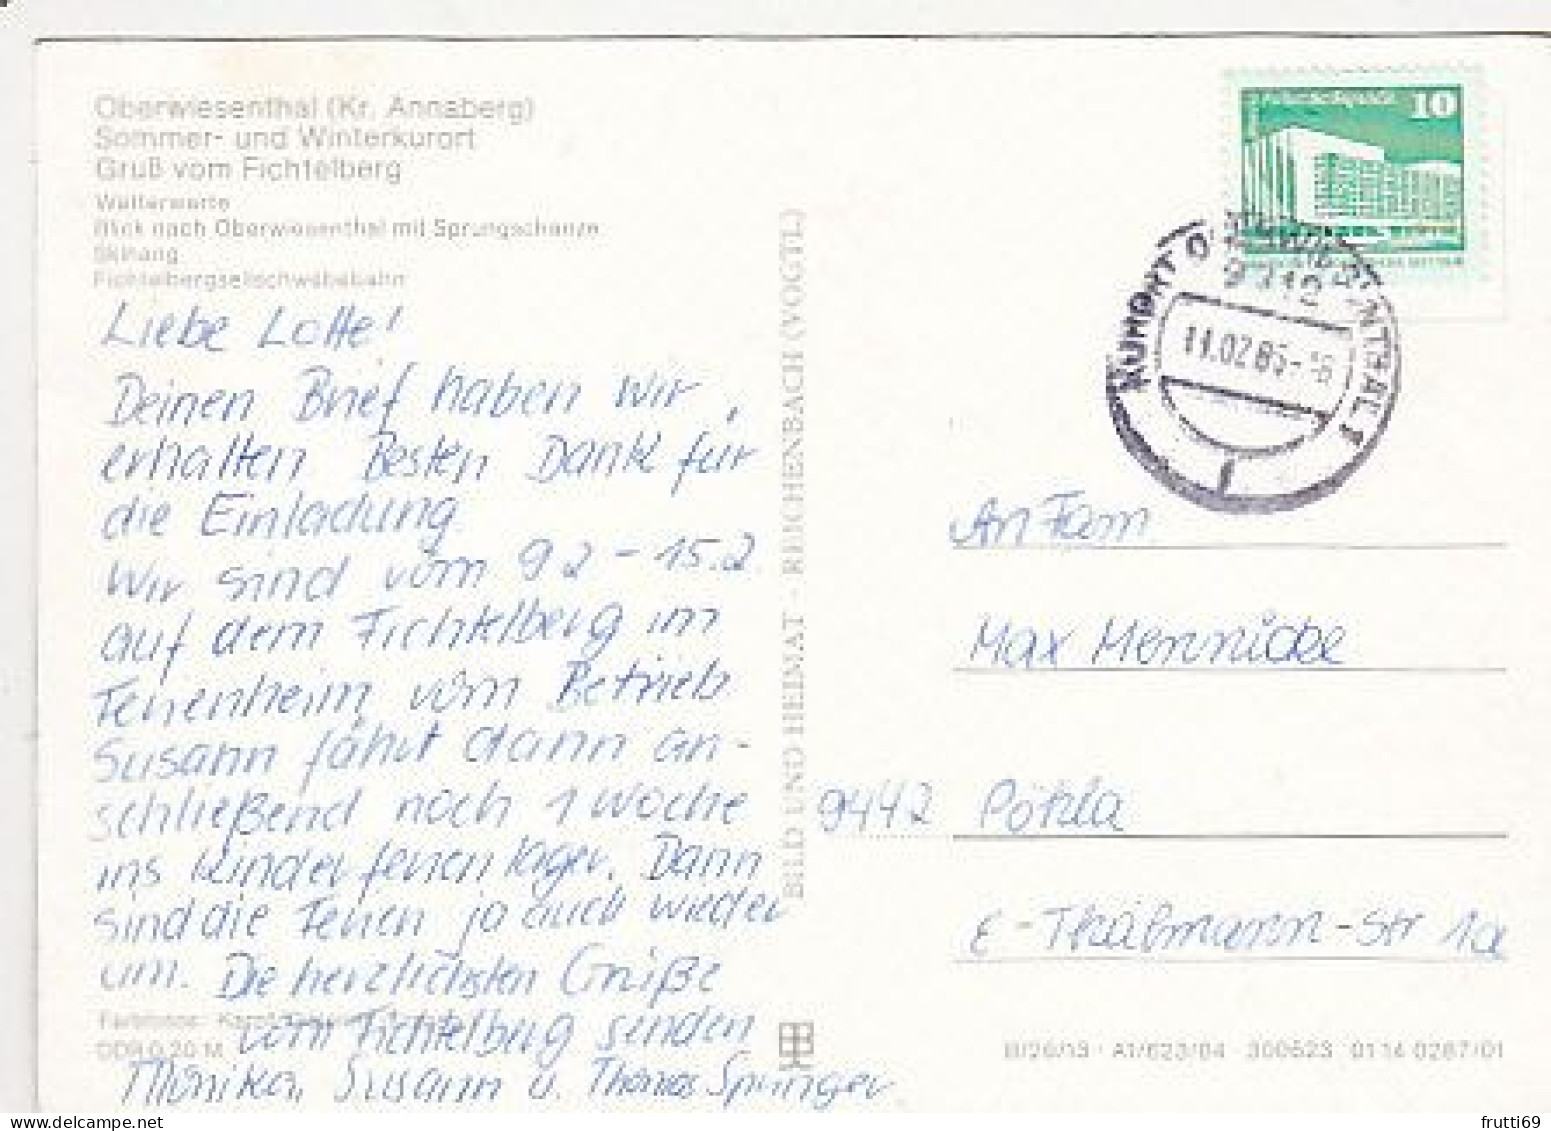 Oberwiesenthal (Kr. Annaberg)
Sommer- und Winterkurort
Gruß vom Fichtelberg
Wetterwarte
Blick nach Oberwiesenthal mit Sprungschanze
Skihang
Fichtelbergseilschwebebahn
Liebe Lotte!
Deinen Brief haben wir,
erhalten Besten Dank für
die Einladung
Wir sind vom 9 2 - 15.2.
auf dem Fichtelberg im
Ferienheim vom Betrieb
Susann fährt dann an-
schließend noch 1 Woche
ins Kinderferienlager. Dann
sind die Ferien ja auch wieder
um. Die herzlichsten Grüße
vom Fichtelberg senden
Monika, Susann u. Thomas Springer
DDR 0,20 M
BILD UND HEIMAT · REICHENBACH (VOGTL)
10
9312
11.02.85
An Fam
Max Mennicke
9442 Pöhla
E-Thälmann-Str 1a
B/26/13 · A1/623/84 300623 01 14 0287/01
frutti69